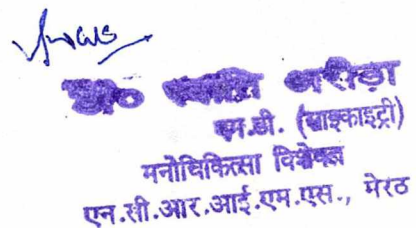 डॉ० अरोड़ा
एम.डी. (साइकाइट्री)
मनोचिकित्सा विशेषज्ञ
एन.सी.आर.आई.एम.एस., मेरठ